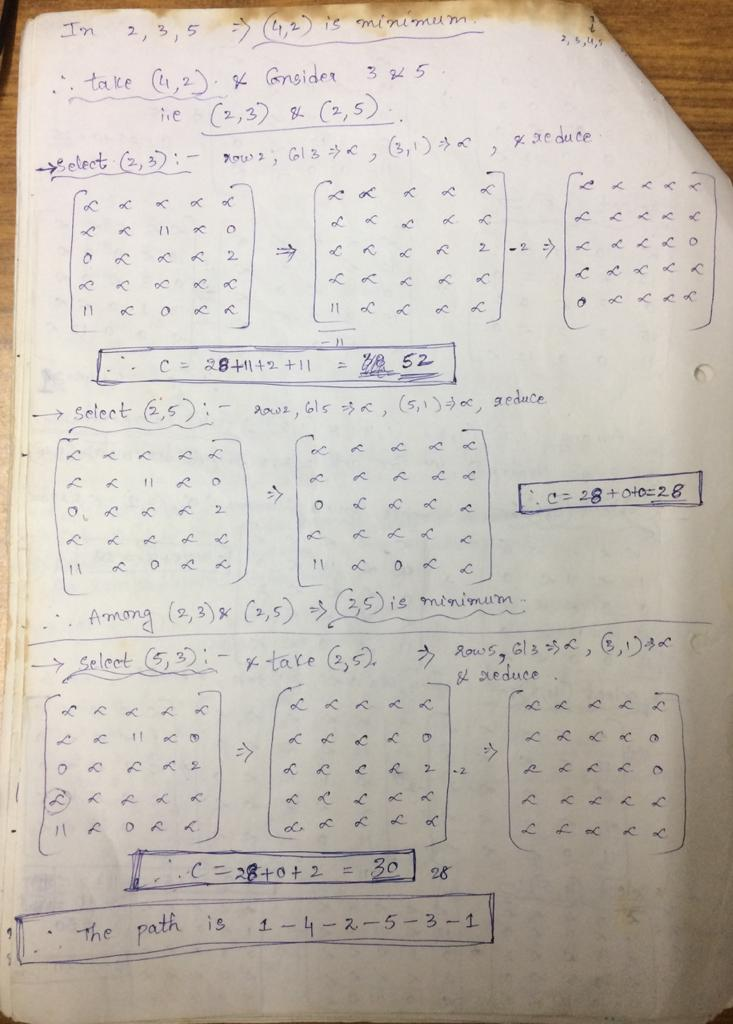 In 2, 3, 5 ⇒ (4,2) is minimum.
2, 3, 4, 5
∴ take (4,2) & Consider 3 & 5.
i.e (2,3) & (2,5).
→ Select (2,3) :- row 2, col 3 ⇒ ∝, (3,1) ⇒ ∝, & reduce
∝ ∝ ∝ ∝ ∝   ∝ ∝ ∝ ∝ ∝   ∝ ∝ ∝ ∝ ∝
∝ ∝ 11 ∝ 0   ∝ ∝ ∝ ∝ ∝   ∝ ∝ ∝ ∝ ∝
0 ∝ ∝ ∝ 2 ⇒ ∝ ∝ ∝ ∝ 2 -2 ⇒ ∝ ∝ ∝ ∝ 0
∝ ∝ ∝ ∝ ∝   ∝ ∝ ∝ ∝ ∝   ∝ ∝ ∝ ∝ ∝
11 ∝ 0 ∝ ∝   11 ∝ ∝ ∝ ∝   0 ∝ ∝ ∝ ∝
-11
∴ C = 28+11+2+11 = 52
→ Select (2,5) :- row 2, col 5 ⇒ ∝, (5,1) ⇒ ∝, reduce
∝ ∝ ∝ ∝ ∝   ∝ ∝ ∝ ∝ ∝
∝ ∝ 11 ∝ 0   ∝ ∝ ∝ ∝ ∝
0 ∝ ∝ ∝ 2 ⇒ 0 ∝ ∝ ∝ ∝ ∴ C = 28+0+0=28
∝ ∝ ∝ ∝ ∝   ∝ ∝ ∝ ∝ ∝
11 ∝ 0 ∝ ∝   11 ∝ 0 ∝ ∝
∴ Among (2,3) & (2,5) ⇒ (2,5) is minimum.
→ Select (5,3) :- & take (2,5). ⇒ row 5, col 3 ⇒ ∝, (3,1) ⇒ ∝
& reduce.
∝ ∝ ∝ ∝ ∝   ∝ ∝ ∝ ∝ ∝   ∝ ∝ ∝ ∝ ∝
∝ ∝ 11 ∝ 0 ⇒ ∝ ∝ ∝ ∝ 0 ⇒ ∝ ∝ ∝ ∝ 0
0 ∝ ∝ ∝ 2   ∝ ∝ ∝ ∝ 2 -2   ∝ ∝ ∝ ∝ 0
∝ ∝ ∝ ∝ ∝   ∝ ∝ ∝ ∝ ∝   ∝ ∝ ∝ ∝ ∝
11 ∝ 0 ∝ ∝   ∝ ∝ ∝ ∝ ∝   ∝ ∝ ∝ ∝ ∝
∴ C = 28+0+2 = 30 28
∴ The path is 1 – 4 – 2 – 5 – 3 – 1